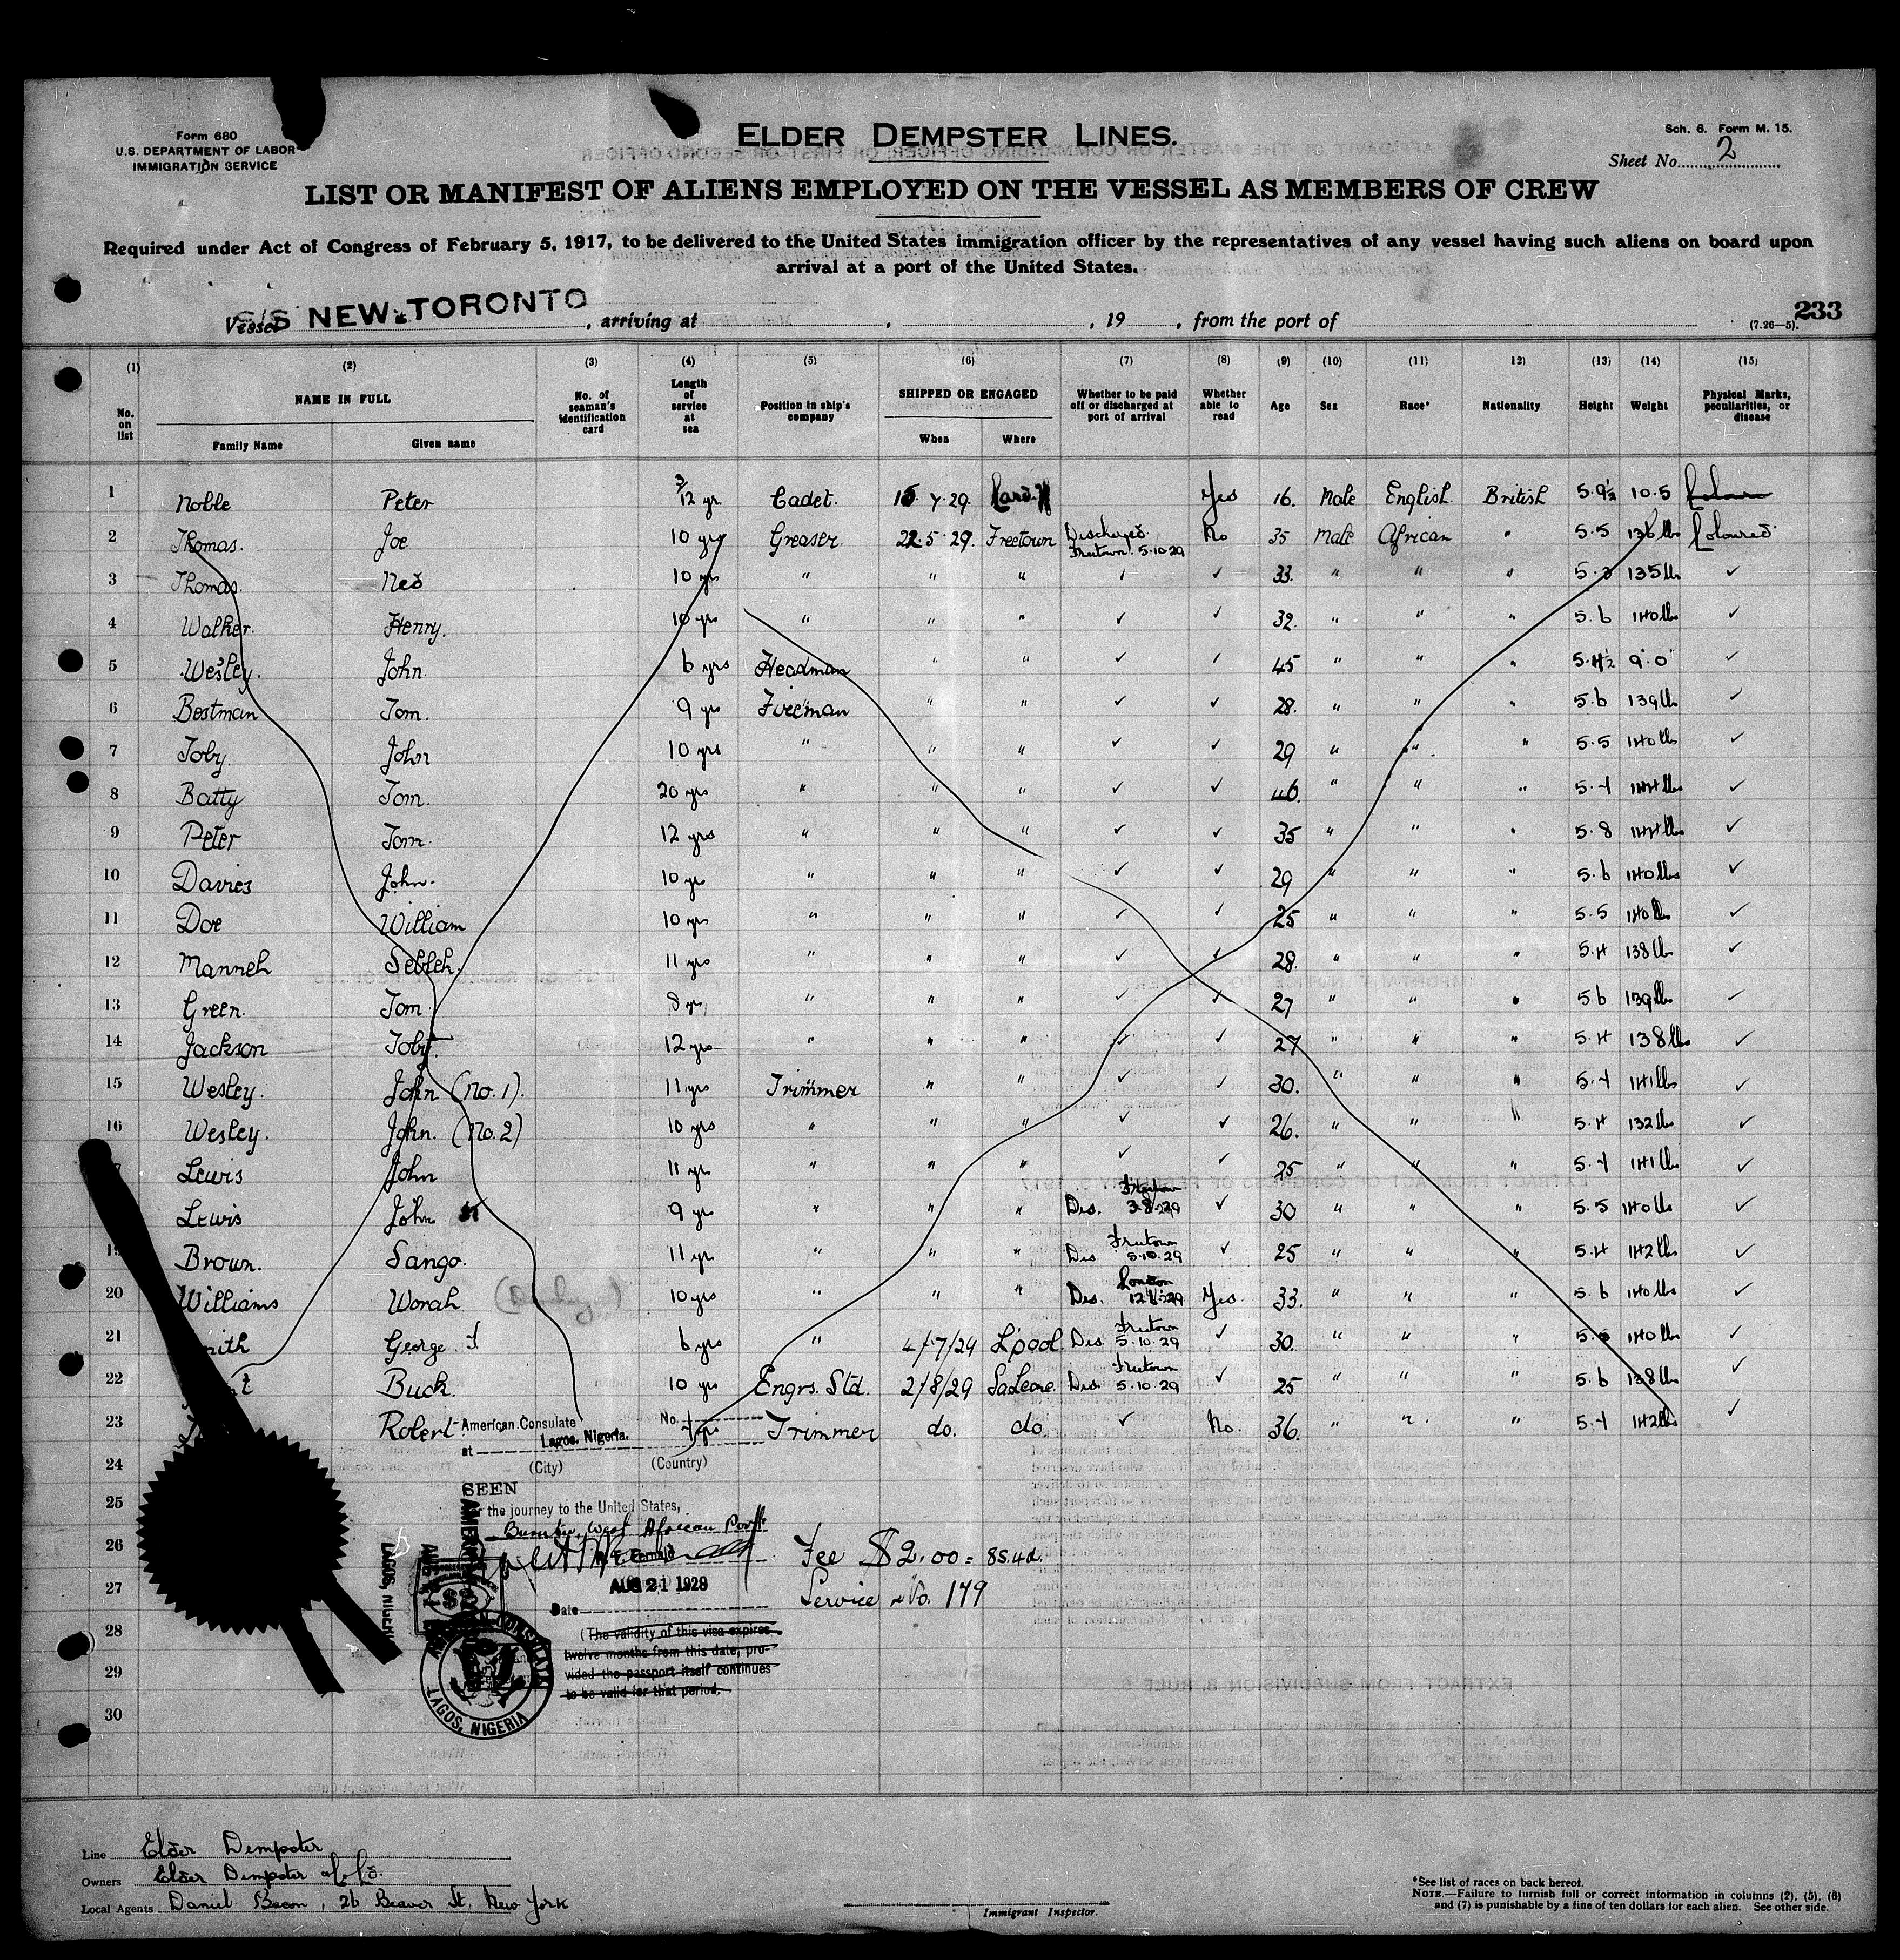 Form 680
U.S. DEPARTMENT OF LABOR
IMMIGRATION SERVICE
ELDER DEMPSTER LINES.
Sch. 6. Form M. 15.
Sheet No. 2
LIST OR MANIFEST OF ALIENS EMPLOYED ON THE VESSEL AS MEMBERS OF CREW
Required under Act of Congress of February 5, 1917, to be delivered to the United States immigration officer by the representatives of any vessel having such aliens on board upon
arrival at a port of the United States.
Vessel S/S NEW TORONTO, arriving at , , 19 , from the port of
(7.26—5). 233
(1) (2) (3) (4) (5) (6) (7) (8) (9) (10) (11) 12) (13) (14) (15)
No. on list NAME IN FULL Family Name Given name No. of seaman's identification card Length of service at sea Position in ship's company SHIPPED OR ENGAGED When Where Whether to be paid off or discharged at port of arrival Whether able to read Age Sex Race* Nationality Height Weight Physical Marks, peculiarities, or disease
1 Noble Peter 3/12 yr Cadet. 15.7.29. Cardiff Yes 16. Male English British 5.9½ 10.5
2 Thomas. Joe 10 yrs Greaser 22.5.29. Freetown Discharged. Freetown. 5.10.29 No 35 Male African " 5.5 136 lbs Coloured
3 Thomas. Ned 10 yrs " " " ✓ ✓ 33. " " " 5.3 135 lbs ✓
4 Walker. Henry. 10 yrs " " " ✓ ✓ 32. " " " 5.6 140 lbs ✓
5 Wesley. John. 6 yrs Headman " " ✓ ✓ 45 " " " 5.4½ 9.0 ✓
6 Bestman Tom. 9 yrs Fireman " " ✓ ✓ 28. " " " 5.6 139 lbs ✓
7 Toby. John 10 yrs " " " ✓ ✓ 29 " " " 5.5 140 lbs ✓
8 Batty Tom. 20 yrs " " " ✓ ✓ 46. " " " 5.7 144 lbs ✓
9 Peter Tom. 12 yrs " " " ✓ ✓ 35 " " " 5.8 144 lbs ✓
10 Davies John. 10 yrs " " " ✓ ✓ 29 " " " 5.6 140 lbs ✓
11 Doe William 10 yrs " " " ✓ ✓ 25 " " " 5.5 140 lbs ✓
12 Manneh Sebleh. 11 yrs " " " ✓ ✓ 28. " " " 5.4 138 lbs ✓
13 Green. Tom. 8 yrs " " " ✓ ✓ 27 " " " 5.6 139 lbs ✓
14 Jackson Toby. 12 yrs " " " ✓ ✓ 27 " " " 5.4 138 lbs ✓
15 Wesley. John (No. 1). 11 yrs Trimmer " " ✓ ✓ 30. " " " 5.7 141 lbs ✓
16 Wesley. John. (No. 2) 10 yrs " " " ✓ ✓ 26. " " " 5.4 132 lbs ✓
Lewis John 11 yrs " " " ✓ ✓ 25 " " " 5.7 141 lbs ✓
Lewis John 9 yr " " " Dis. Freetown ✓ 30 " " " 5.5 140 lbs ✓
19 Brown. Sango. 11 yr " " " Dis Freetown 5.10.29 ✓ 25 " " " 5.4 142 lbs ✓
20 Williams Worah 10 yrs " " " Dis. London Yes. 33. " " " 5.6 140 lbs ✓
21 George 6 yrs " 4/7/29 L'pool. Dis Freetown 5.10.29 ✓ 30. " " " 140 lbs ✓
22 Buck. 10 yrs Engrs. Std. 2/8/29 SaLeone. Dis. Freetown 5.10.29 ✓ 25 " " " 5.6 138 lbs ✓
23 Robert Trimmer do. do. ✓ No. 36. " " " 5.7 142 lbs ✓
24
25
26
27
28
29
30
American Consulate No.
at Lagos, Nigeria.
(City) (Country)
SEEN
for the journey to the United States,
West African Ports
AUG 21 1929
Date
(The validity of this visa expires
twelve months from this date, pro-
vided the passport itself continues
to be valid for that period.
Fee $2.00 = 8s.4d.
Service No. 179
LAGOS, NIGERIA
$2
CONSULATE
LAGOS, NIGERIA
Line Elder Dempster
Owners Elder Dempster & Co Ld.
Local Agents Daniel Bacon, 26 Beaver St. New York
Immigrant Inspector.
*See list of races on back hereof.
NOTE.—Failure to furnish full or correct information in columns (2), (5), (6)
and (7) is punishable by a fine of ten dollars for each alien. See other side.